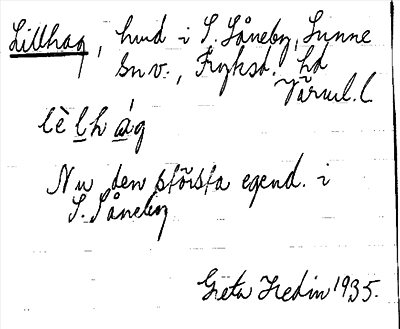 Lillhag, hmd i S. Såneby, Sunne
sn v., Fryksd. hd
Värml. l.
lè l h á g
Nu den största egend. i
S. Såneby
Greta Hedin 1935.